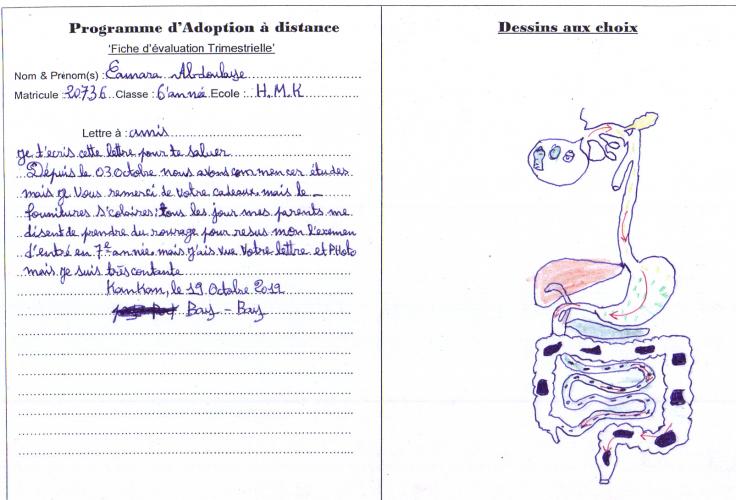 Programme d'Adoption à distance
'Fiche d'évaluation Trimestrielle'
Nom & Prénom(s) : Camara Abdoulaye
Matricule 20736 Classe : 6'année Ecole : H.M.K
Lettre à : amis
je t'ecris cette lettre pour te saluer
Dépuis le 03 Octobre nous avons commencer études
mais je Vous remerci de Votre cadeaux mais le
fournitures S'colaires; tous les jour mes parents me
disent de prendre du courage pour resus mon l'exemen
d'entré en 7e année mais j'ais vue Votre lettre et PHoto
mais je suis très contante
Kankan, le 19 Octobre 2019
Bay - Bay
Dessins aux choix